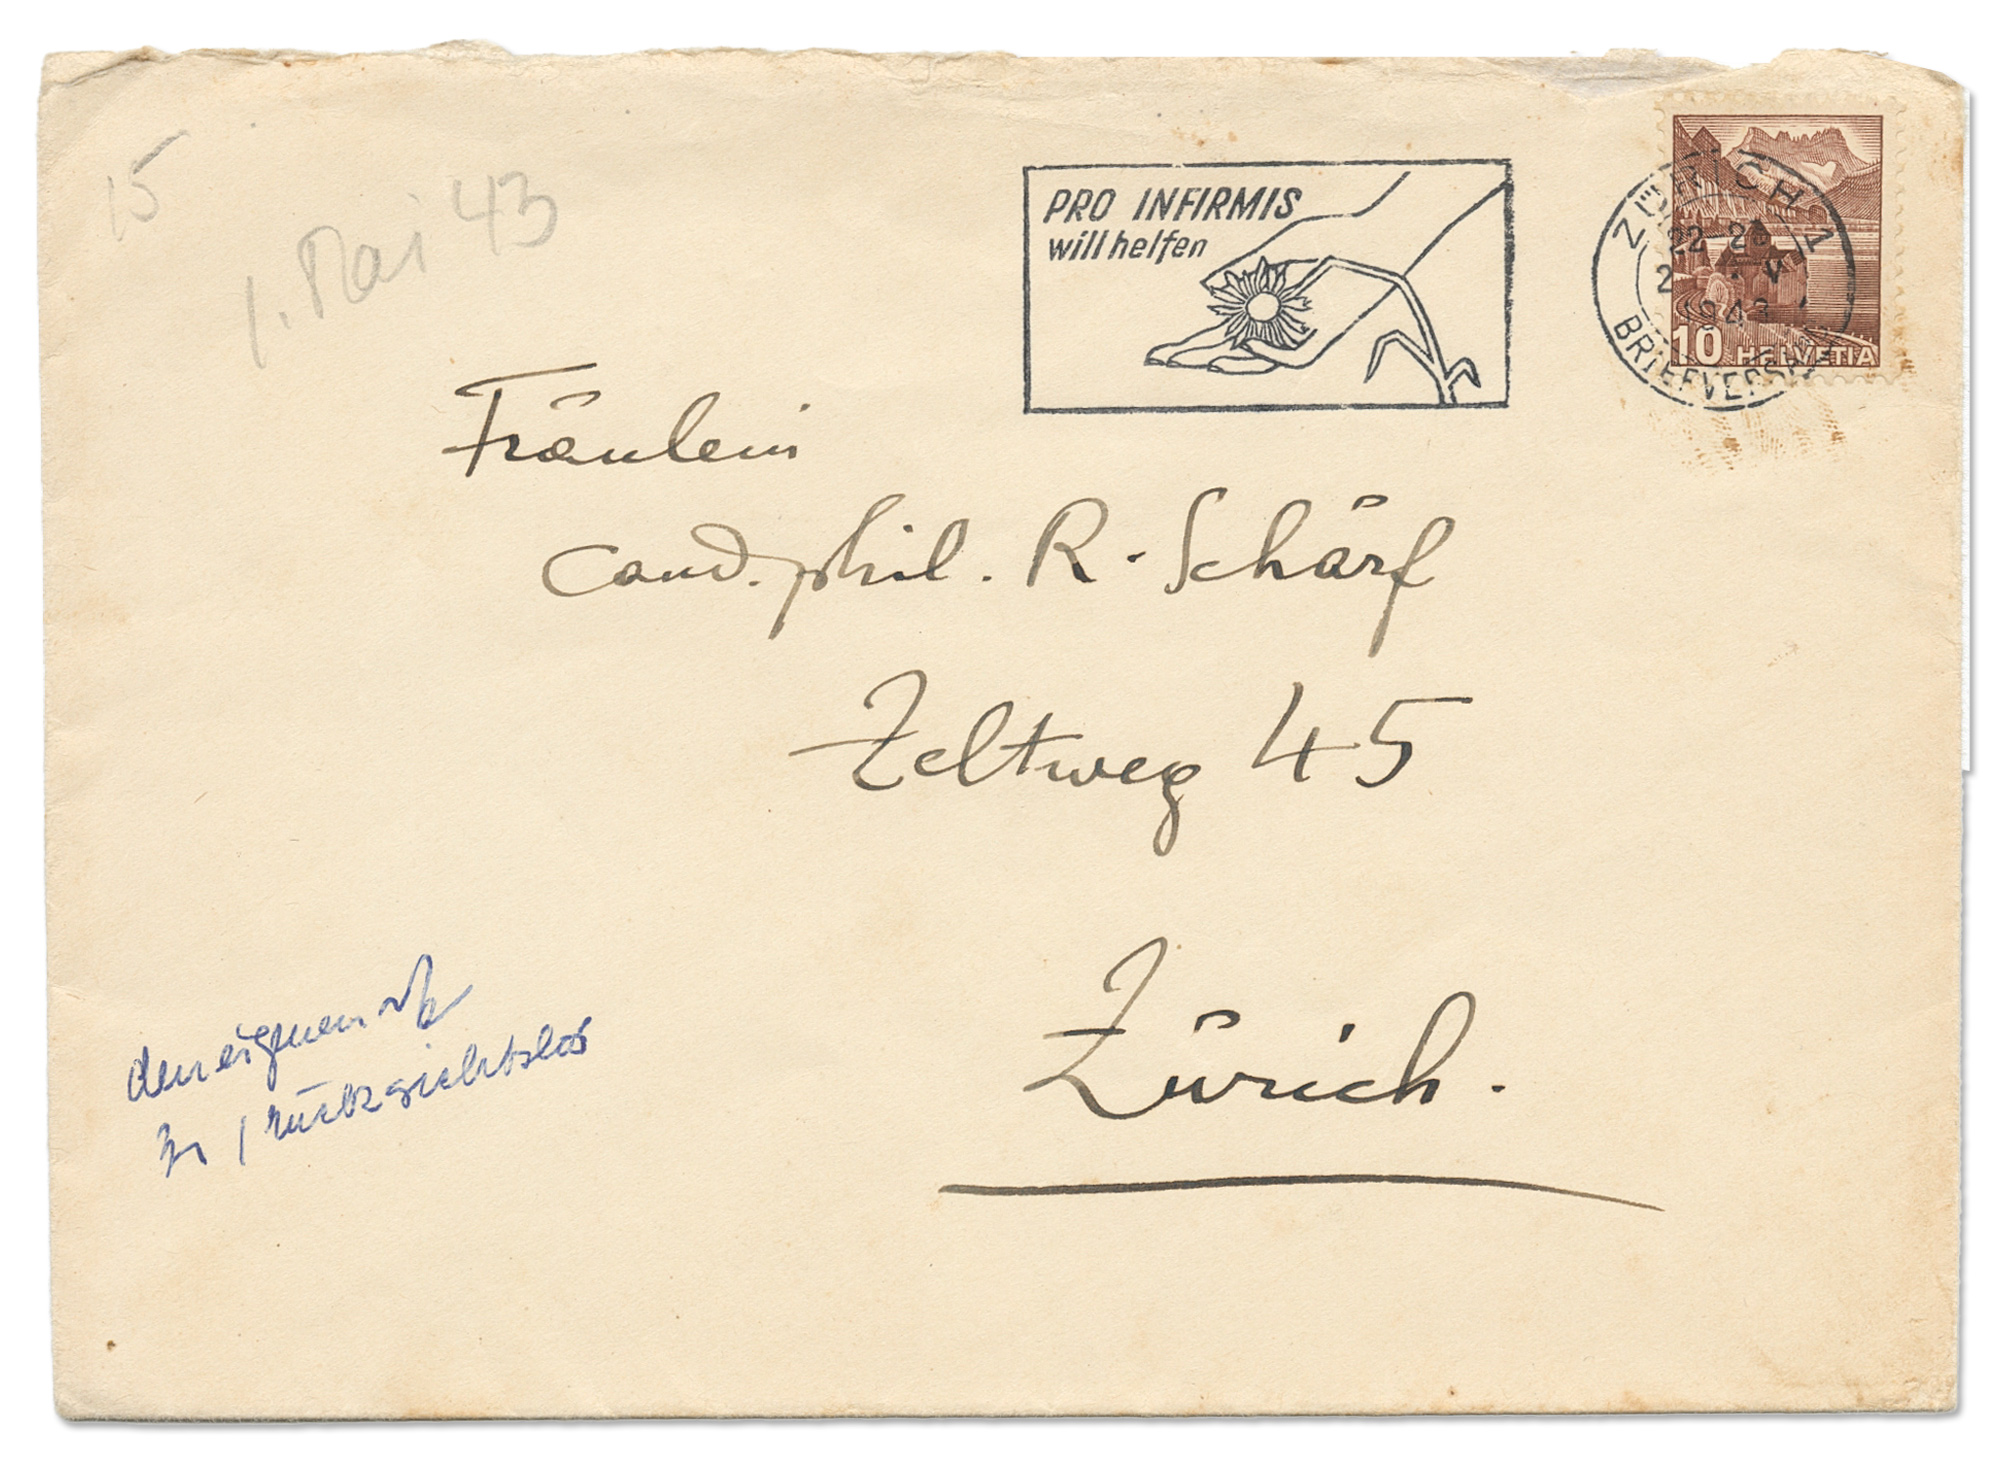 15
1. Mai 43
PRO INFIRMIS
will helfen
ZÜRICH 1
22-23
2. V
1943
BRIEFVERSAND
10 HELVETIA
Fräulein
cand. phil. R. Schärf
Zeltweg 45
Zürich.
rücksichtslos